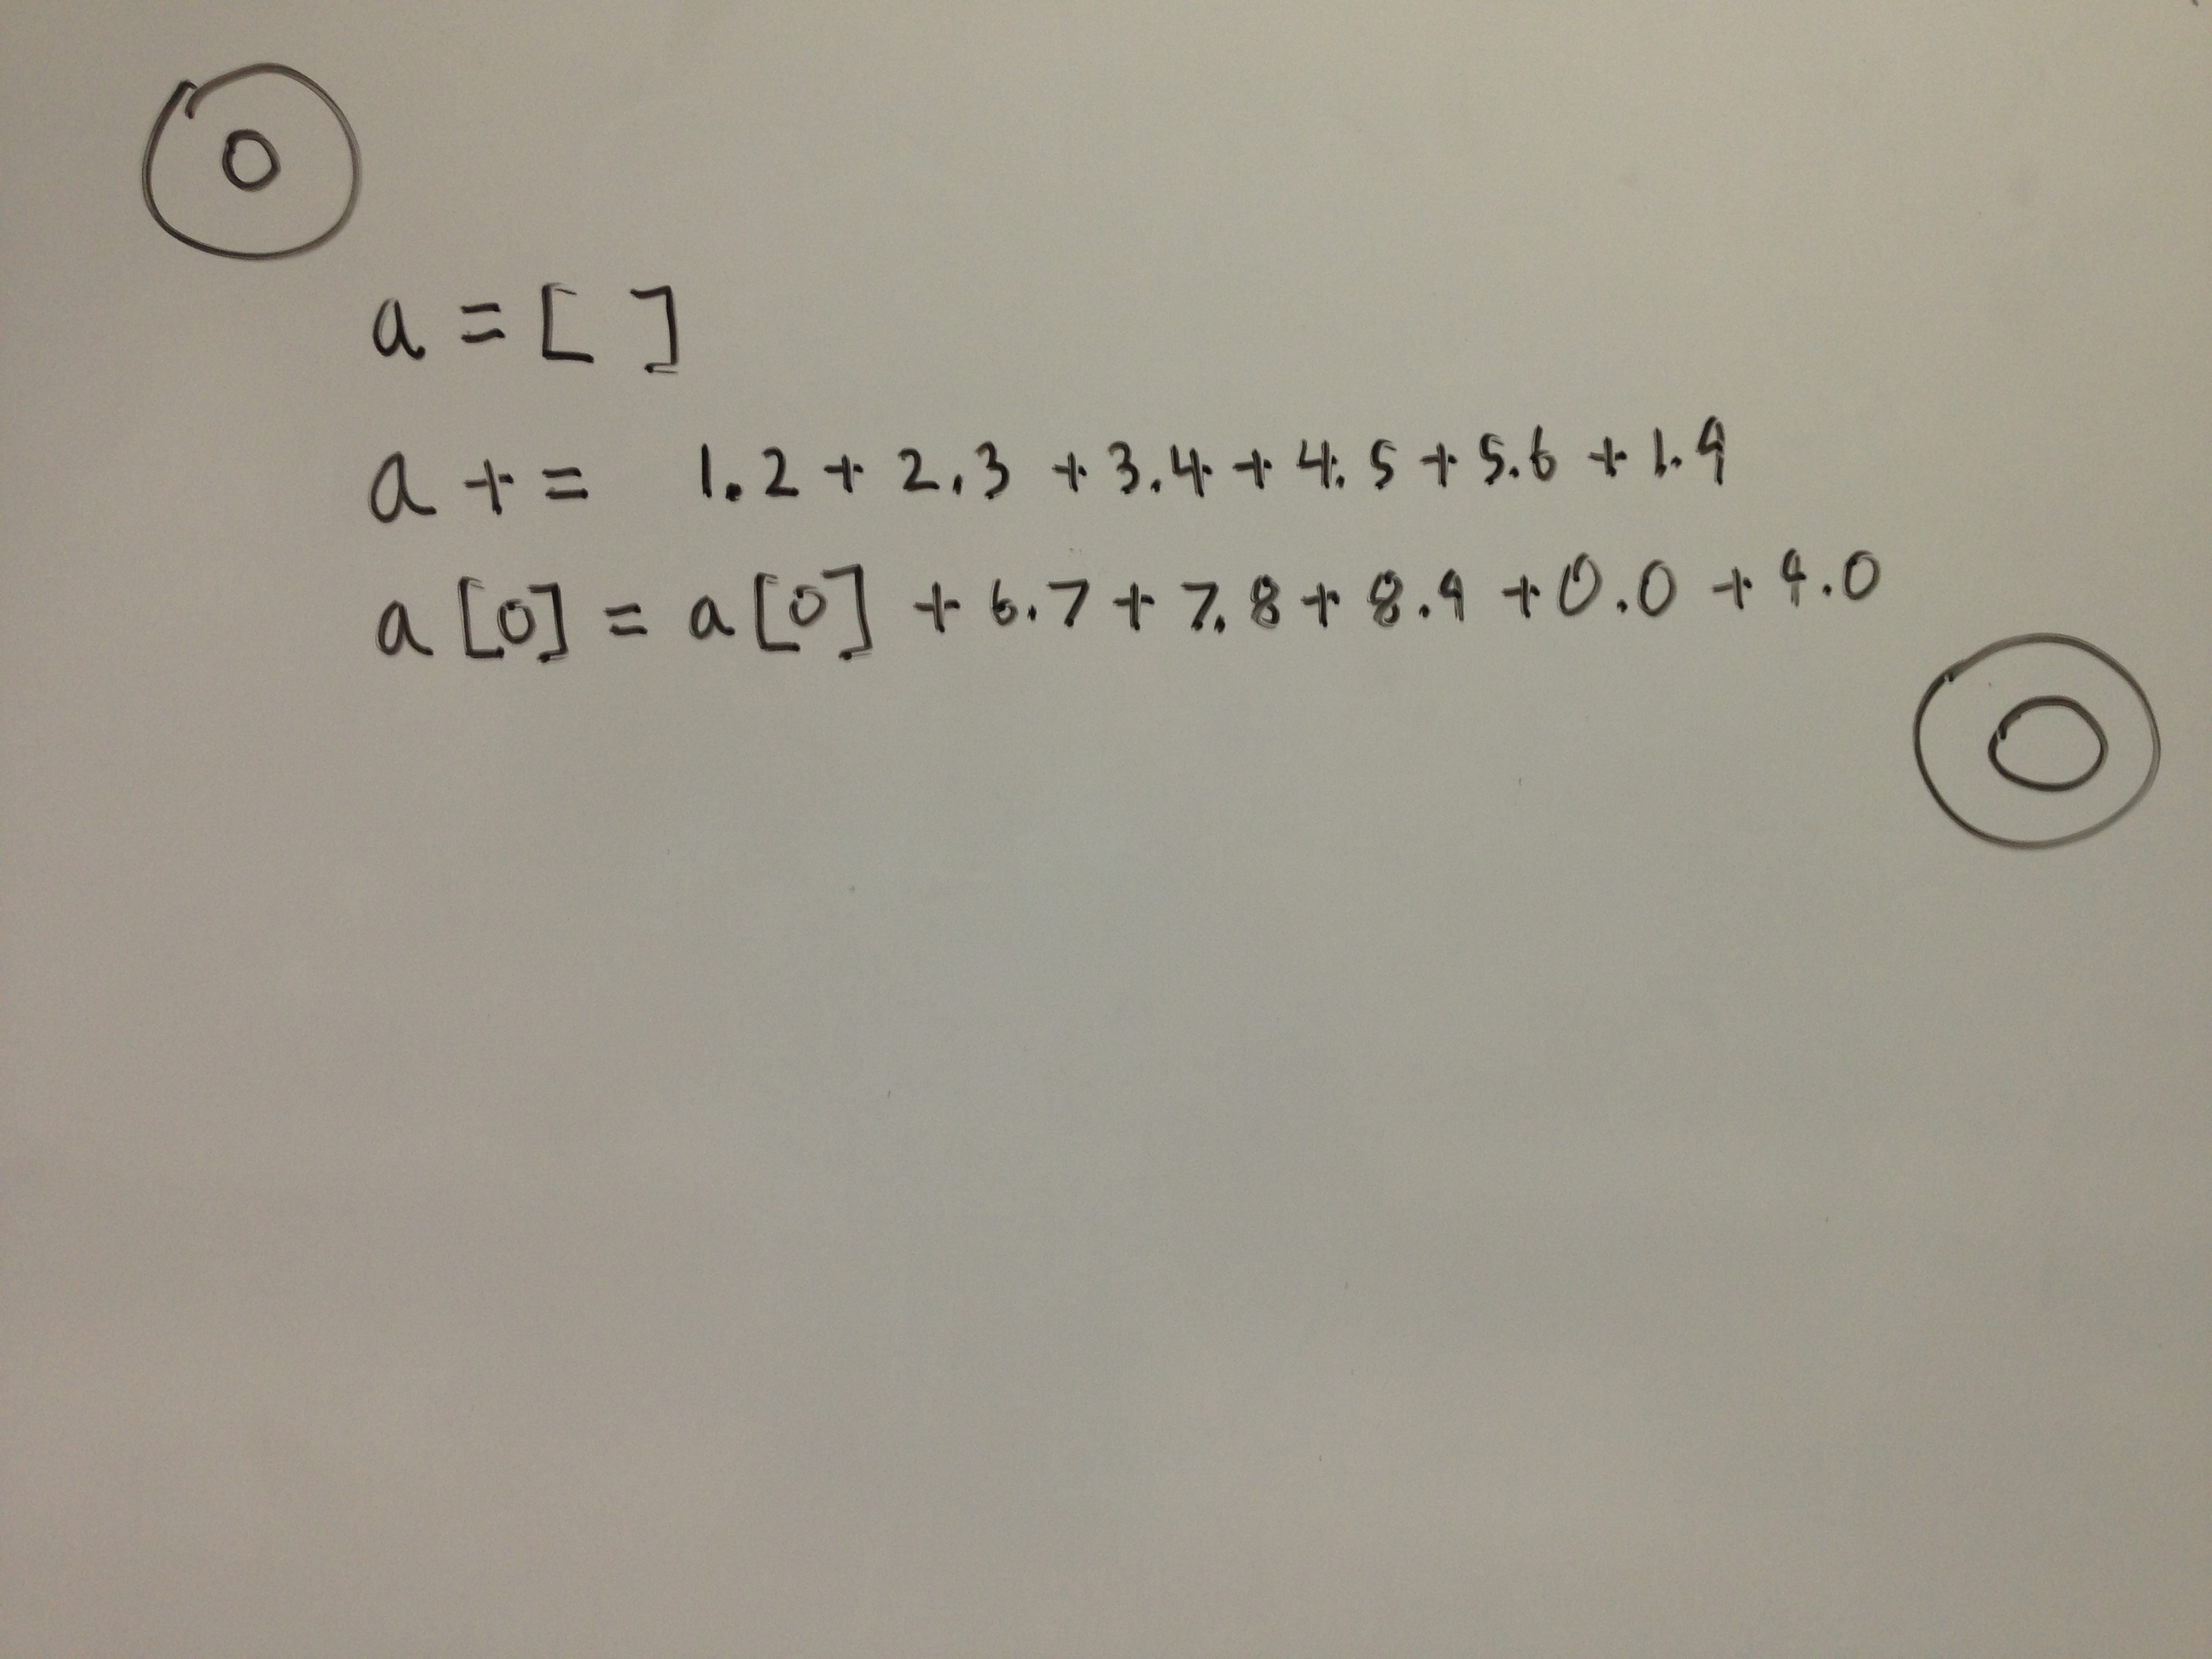 0
a = [ ]
a += 1.2 + 2.3 + 3.4 + 4.5 + 5.6 + 1.9
a [0] = a [0] + 6.7 + 7.8 + 8.9 + 0.0 + 9.0
0